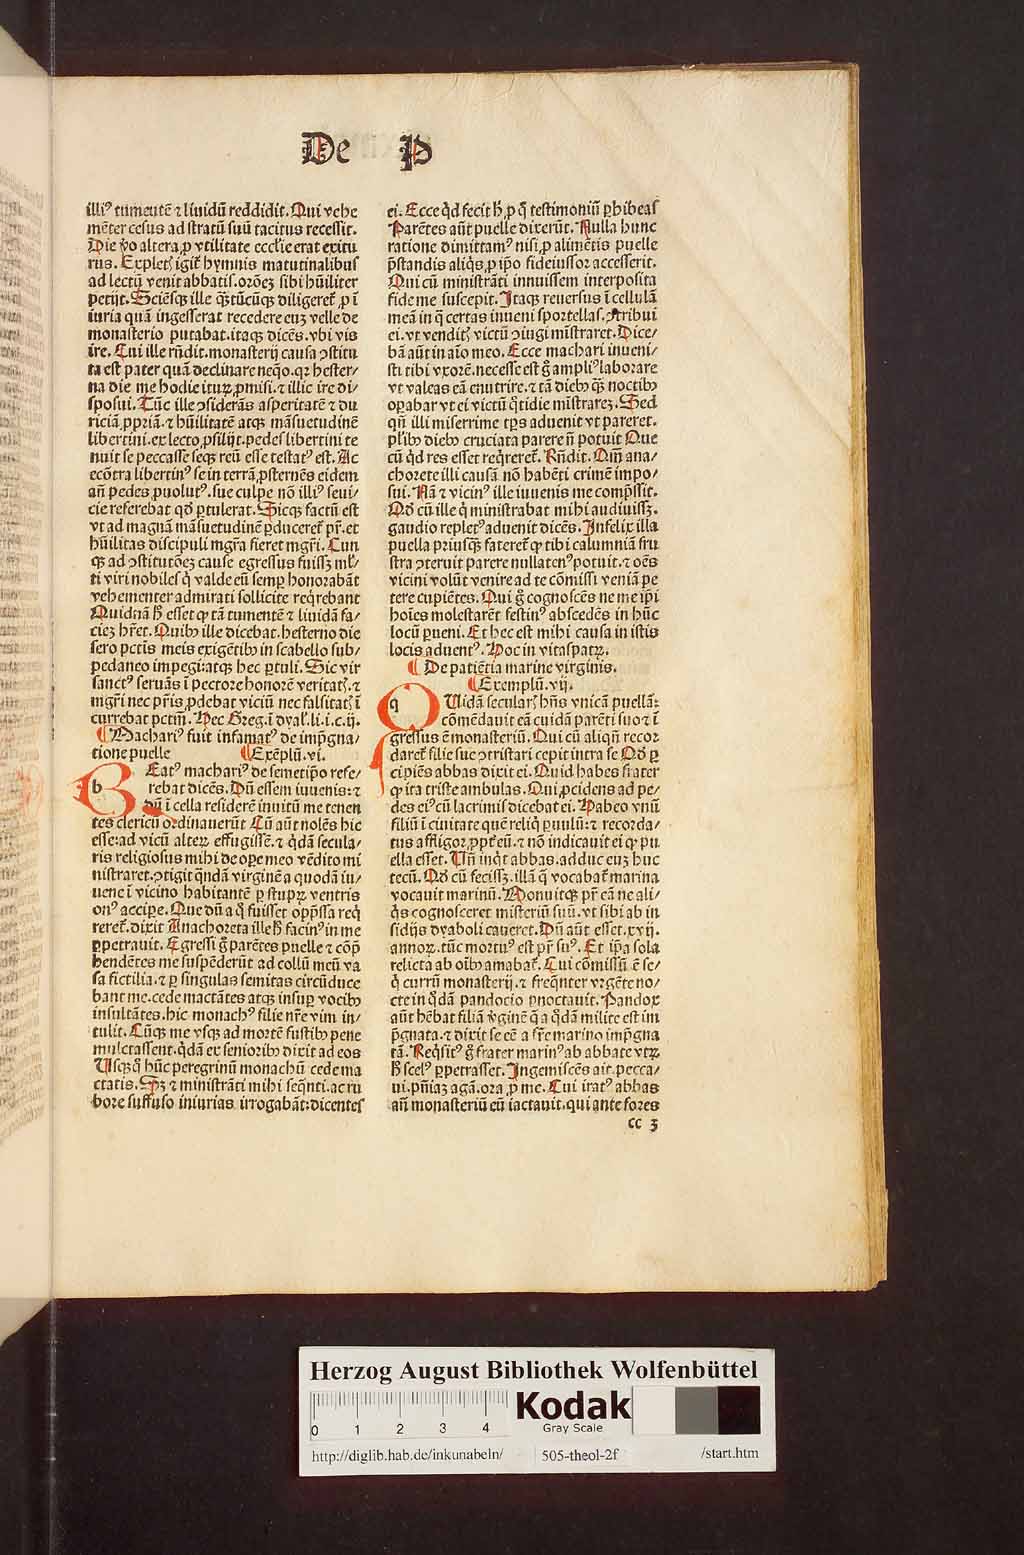 De P
illiꝰ tumentē ⁊ liuidū reddidit. Qui vehe
mēter cesus ad stratū suū tacitus recessit.
Die ṽo altera ꝓ vtilitate eccl'ie erat exitu
rus. Explet' igit' hymnis matutinalibus
ad lectū venit abbatis. orōeꝫ sibi hūiliter
petijt. Sciēsqꝫ ille qꝫ tūcūqꝫ diligeret' ꝓ ī
iuria quā ingesserat recedere euꝫ velle de
monasterio putabat. itaqꝫ dicēs. vbi vis
ire. Cui ille rn̄dit. monasterij causa ꝯstitu
ta est pater quā declinare neqo. qꝛ hester⸗
na die me hodie ituꝝ ꝓmisi. ⁊ illic ire di⸗
sposui. Tūc ille ꝯsiderās asperitatē ⁊ du
riciā ꝓpriā. ⁊ hūilitatē atqꝫ māsuetudinē
libertini. ex lecto ꝓsilijt. pedes libertini te
nuit se peccasse seqꝫ reū esse testatꝰ est. Ac
ecōtra libertinꝰ se in terrā ꝓsternēs eidem
an̄ pedes ꝓuolutꝰ. sue culpe nō illiꝰ seui⸗
cie referebat qd̄ ꝑtulerat. Sicqꝫ factū est
vt ad magnā māsuetudinē ꝑduceret' pr̄. et
hūilitas discipuli mgr̄a fieret mgr̄i. Cun
qꝫ ad ꝯstitutōeꝫ cause egressus fuissꝫ ml'
ti viri nobiles q̇ valde eū semꝑ honorabāt
vehementer admirati sollicite reqͥrebant
Quidnā h̄ esset ꝙ tā tumentē ⁊ liuidā fa⸗
cieꝫ hr̄et. Quibꝰ ille dicebat. hesterno die
sero pctīs meis exigētibꝰ in scabello sub⸗
pedaneo impegi: atqꝫ hec ꝑtuli. Sic vir
sanctꝰ seruās ī pectore honorē veritat'. ⁊
mgr̄i nec pr̄is ꝓdebat viciū nec falsitat' ī
currebat pctm̄. Hec Greg. ī dyal'. li. i. c. ij.
¶ Machariꝰ fuit infamatꝰ de impgna⸗
tione puelle ¶ Exēplū. vi.
b Eatꝰ machariꝰ de semetip̄o refe⸗
rebat dicēs. Dū essem iuuenis: ⁊
dū ī cella residerē inuitū me tenen
tes clericū ordinauerūt Cū aūt nolēs hic
esse: ad vicū alteꝝ effugissē. ⁊ q̇dā secula⸗
ris religiosus mihi de ope meo vēdito mi
nistraret. ꝯtigit qͣndā virginē a quodā iu⸗
uene ī vicino habitantē ꝑ stupꝝ ventris
onꝰ accipe. Que dū a q̇ fuisset opp̄ssa req̇
reret'. dixit Anachoreta ille h̄ facinꝰ in me
ꝑpetrauit. Egressi g̊ parētes puelle ⁊ cōp̄
hendētes me suspēderūt ad collū meū va
sa fictilia. ⁊ ꝑ singulas semitas circūduce
bant me. cede mactātes atqꝫ insuꝑ vocibꝰ
insultātes. hic monachꝰ filie nr̄e vim in⸗
tulit. Cūqꝫ me vsqꝫ ad mortē fustibꝰ pene
mulctassent. q̇dā ex senioribꝰ dixit ad eos
Vsqꝫq̇ hūc peregrinū monachū cede ma
ctatis. Sꝫ ⁊ ministrāti mihi seqn̄ti. ac ru
bore suffuso iniurias irrogabāt: dicentes
ei. Ecce qͥd fecit h̄ ꝓ q̄ testimoniū ꝑhibeas
Parētes aūt puelle dixerūt. Nulla hunc
ratione dimittamꝰ nisi ꝓ alimētis puelle
p̄standis aliq̇s ꝓ ip̄o fideiussor accesserit.
Qui cū ministrāti innuissem interposita
fide me suscepit. Itaqꝫ reuersus ī cellulā
meā in q̄ certas inueni sportellas. Attribui
ei. vt vendit' victū ꝯiugi mīstraret. Dice⸗
bā aūt in aīo meo. Ecce machari inueni⸗
sti tibi vxorē. necesse est g̊ ampliꝰ laborare
vt valeas eā enutrire. ⁊ tā diebꝰ qꝫ noctibꝰ
oꝑabar vt ei victū qͥtidie mīstrareꝫ. Sed
qn̄ illi miserrime tp̄s aduenit vt pareret.
pl'ibꝰ diebꝰ cruciata parere n̄ potuit Que
cū qͥd res esset reqͥreret'. Rn̄dit. Qm̄ ana⸗
chorete illi causā nō habēti crimē impo⸗
sui. Nā ⁊ vicinꝰ ille iuuenis me comp̄ssit.
Qd̄ cū ille q̇ ministrabat mihi audiuissꝫ.
gaudio repletꝰ aduenit dicēs. Infelix illa
puella priusqꝫ fateret' ꝙ tibi calumniā fru
stra ꝯteruit parere nullatenꝰ potuit. ⁊ oēs
vicini volūt venire ad te cōmissi veniā pe
tere cupiētes. Qui g̊ cognoscēs ne me ip̄i
hoīes molestarēt festinꝰ abscedēs in hūc
locū ꝑueni. Et hec est mihi causa in istis
locis aduentꝰ. Hoc in vitaspatꝝ.
¶ De patiētia marine virginis.
¶ Exemplū. vij.
q Uidā secularꝭ hn̄s vnicā puellā:
cōmēdauit eā cuidā parēti suo: ⁊ ī
gressus ē monasteriū. Qui cū aliqn̄ recor
daret' filie sue ꝯtristari cepit intra se Qd̄ ꝑ
cipiēs abbas dixit ei. Quid habes frater
ꝙ ita triste ambulas. Qui ꝓcidens ad pe⸗
des eiꝰ cū lacrimis dicebat ei. Habeo vnū
filiū ī ciuitate quē reliq̇ paruulū: ⁊ recorda⸗
tus affligor ꝓpt' eū. ⁊ nō indicauit ei ꝙ pu
ella esset. Un̄ inqͥt abbas. adduc euꝫ huc
tecū. Qd̄ cū fecissꝫ. illā q̄ vocabat' marina
vocauit marinū. Monuitqꝫ pr̄ eā ne ali⸗
q̇s cognosceret misteriū suū. vt sibi ab in
sidijs dyaboli caueret. Dū aūt esset. xvij.
annoꝝ. tūc mortuꝰ est pr̄ suꝰ. Et ip̄a sola
relicta ab oībꝰ amabat'. Cui cōmissū ē se⸗
q̇ currū monasterij. ⁊ freqͥnter vrgēte no⸗
cte in q̇dā pandocio ꝑnoctauit. Pandox
aūt hēbat filiā v̓ginē q̄ a q̇dā milite est im
p̄gnata. ⁊ dixit se eē a fr̄e marino imp̄gna
tā. Reqͥsitꝰ g̊ frater marinꝰ ab abbate vtꝝ
h̄ scelꝰ ꝑpetrasset. Ingemiscēs ait. pecca⸗
ui. pn̄iaꝫ agā. ora ꝓ me. Cui iratꝰ abbas
an̄ monasteriū eū iactauit. qui ante fores
cc 3
Herzog August Bibliothek Wolfenbüttel
0 1 2 3 4
Kodak
Gray Scale
http://diglib.hab.de/inkunabeln/ 505-theol-2f /start.htm